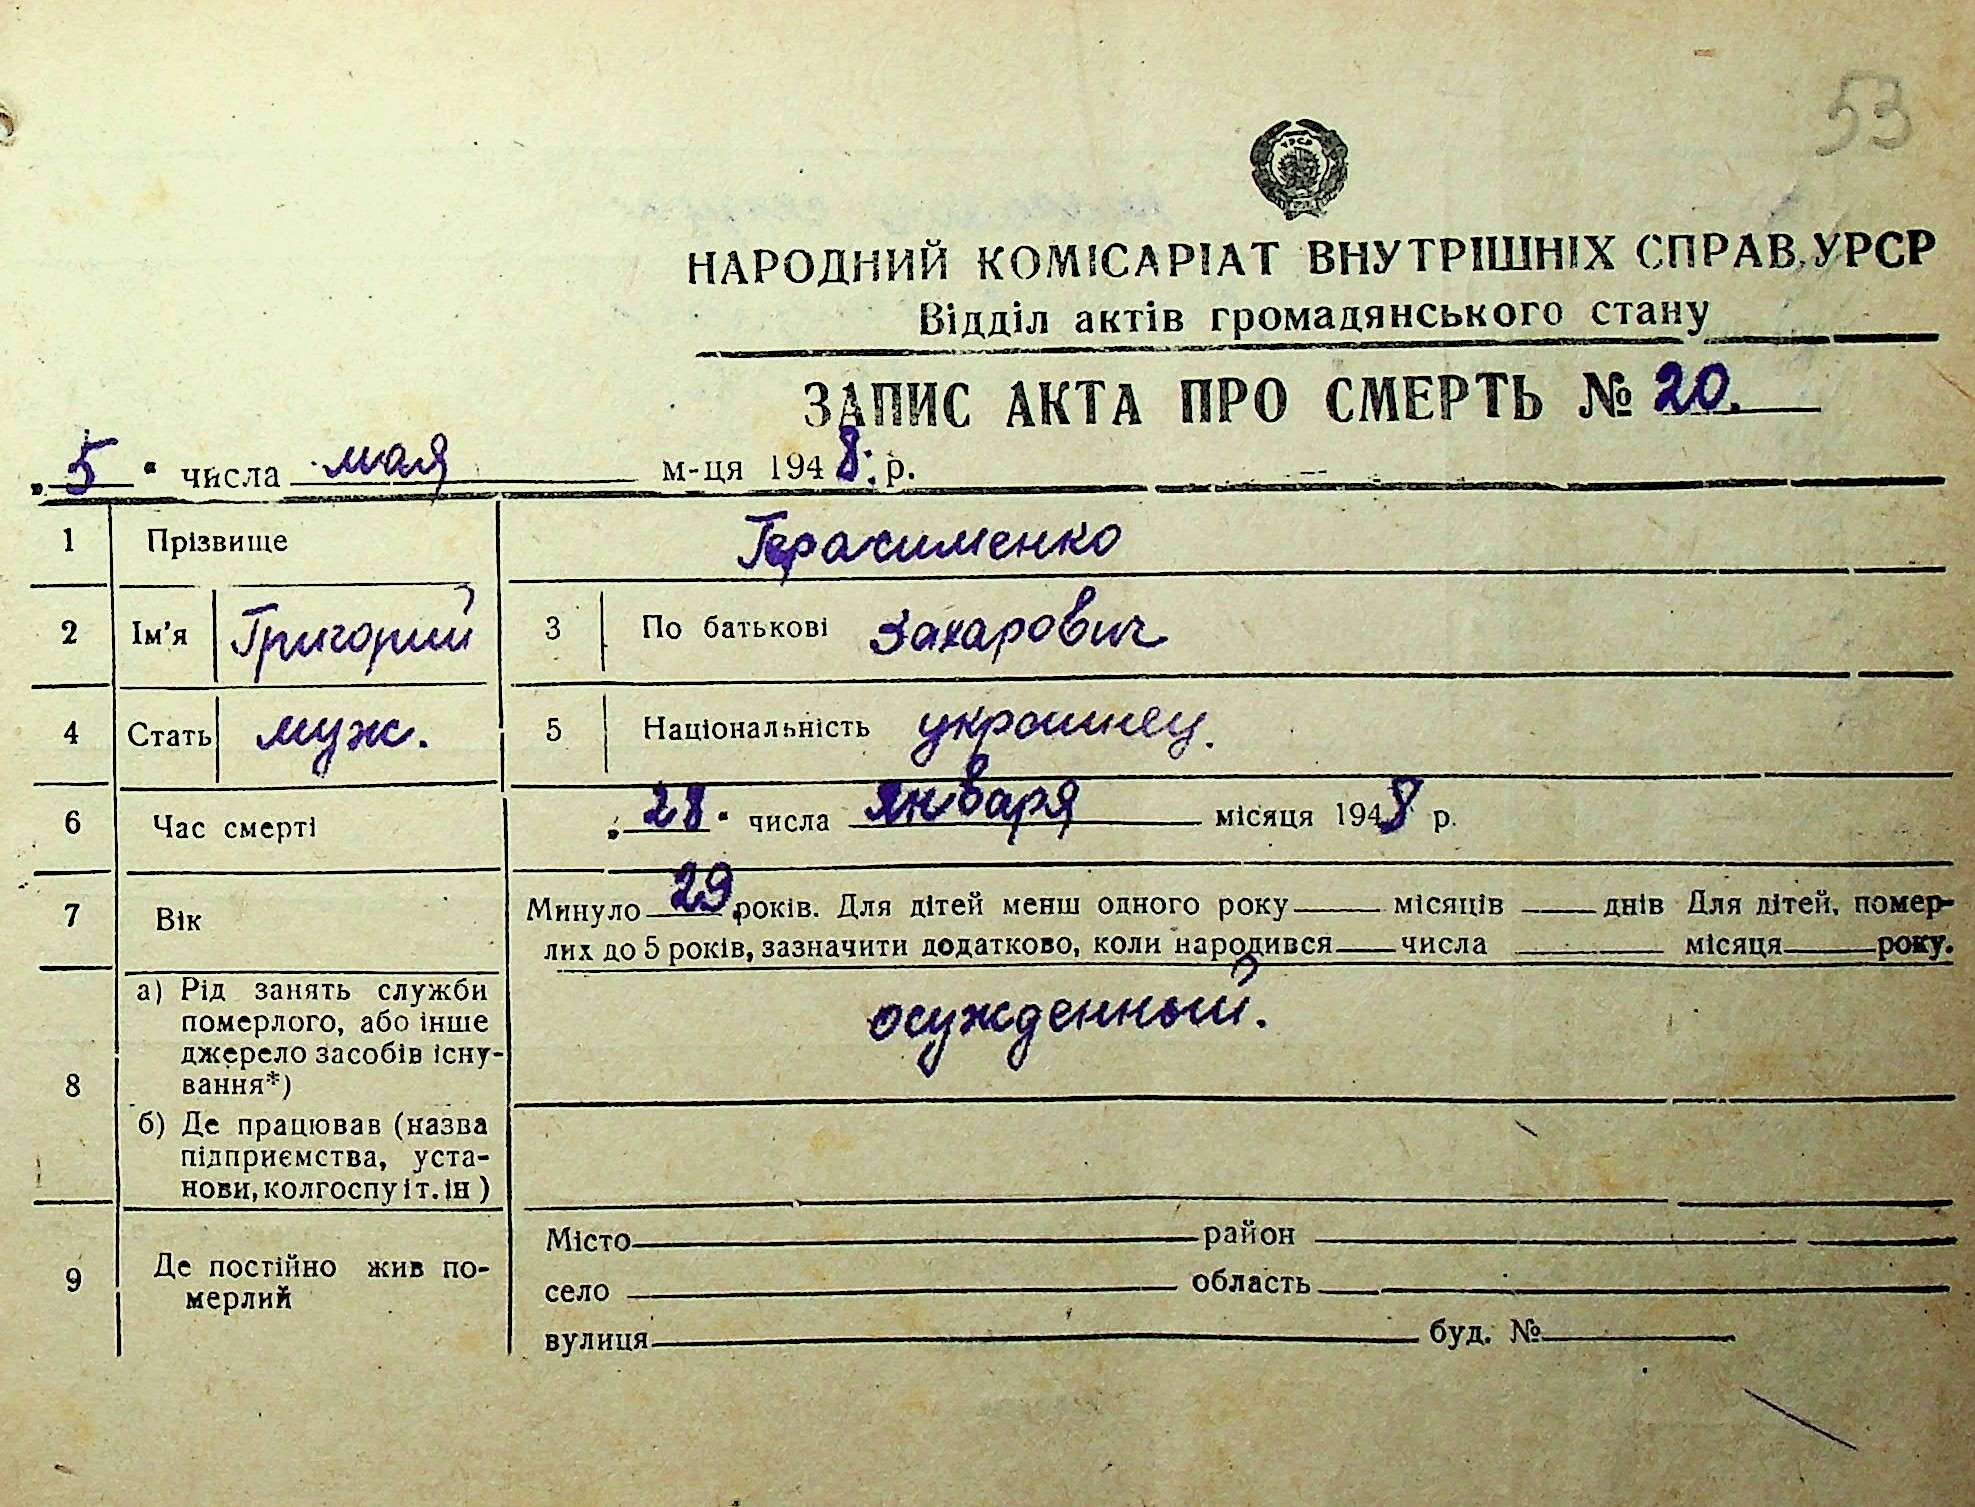 53
УРСР
НАРОДНИЙ КОМІСАРІАТ ВНУТРІШНІХ СПРАВ УРСР
Відділ актів громадянського стану
ЗАПИС АКТА ПРО СМЕРТЬ № 20.
„5“ числа мая м-ця 1948. р.
1 Прізвище Герасименко
2 Ім’я Григорий 3 По батькові Захарович
4 Стать муж. 5 Національність украинец.
6 Час смерті „28“ числа января місяця 1948 р.
7 Вік Минуло 29 років. Для дітей менш одного року місяців днів Для дітей, помер-
лих до 5 років, зазначити додатково, коли народився числа місяця року.
8 а) Рід занять служби
померлого, або інше
джерело засобів існу-
вання*)
осужденный.
б) Де працював (назва
підприємства, уста-
нови, колгоспу і т. ін )
9 Де постійно жив по-
мерлий
Місто район
село область
вулиця буд. №